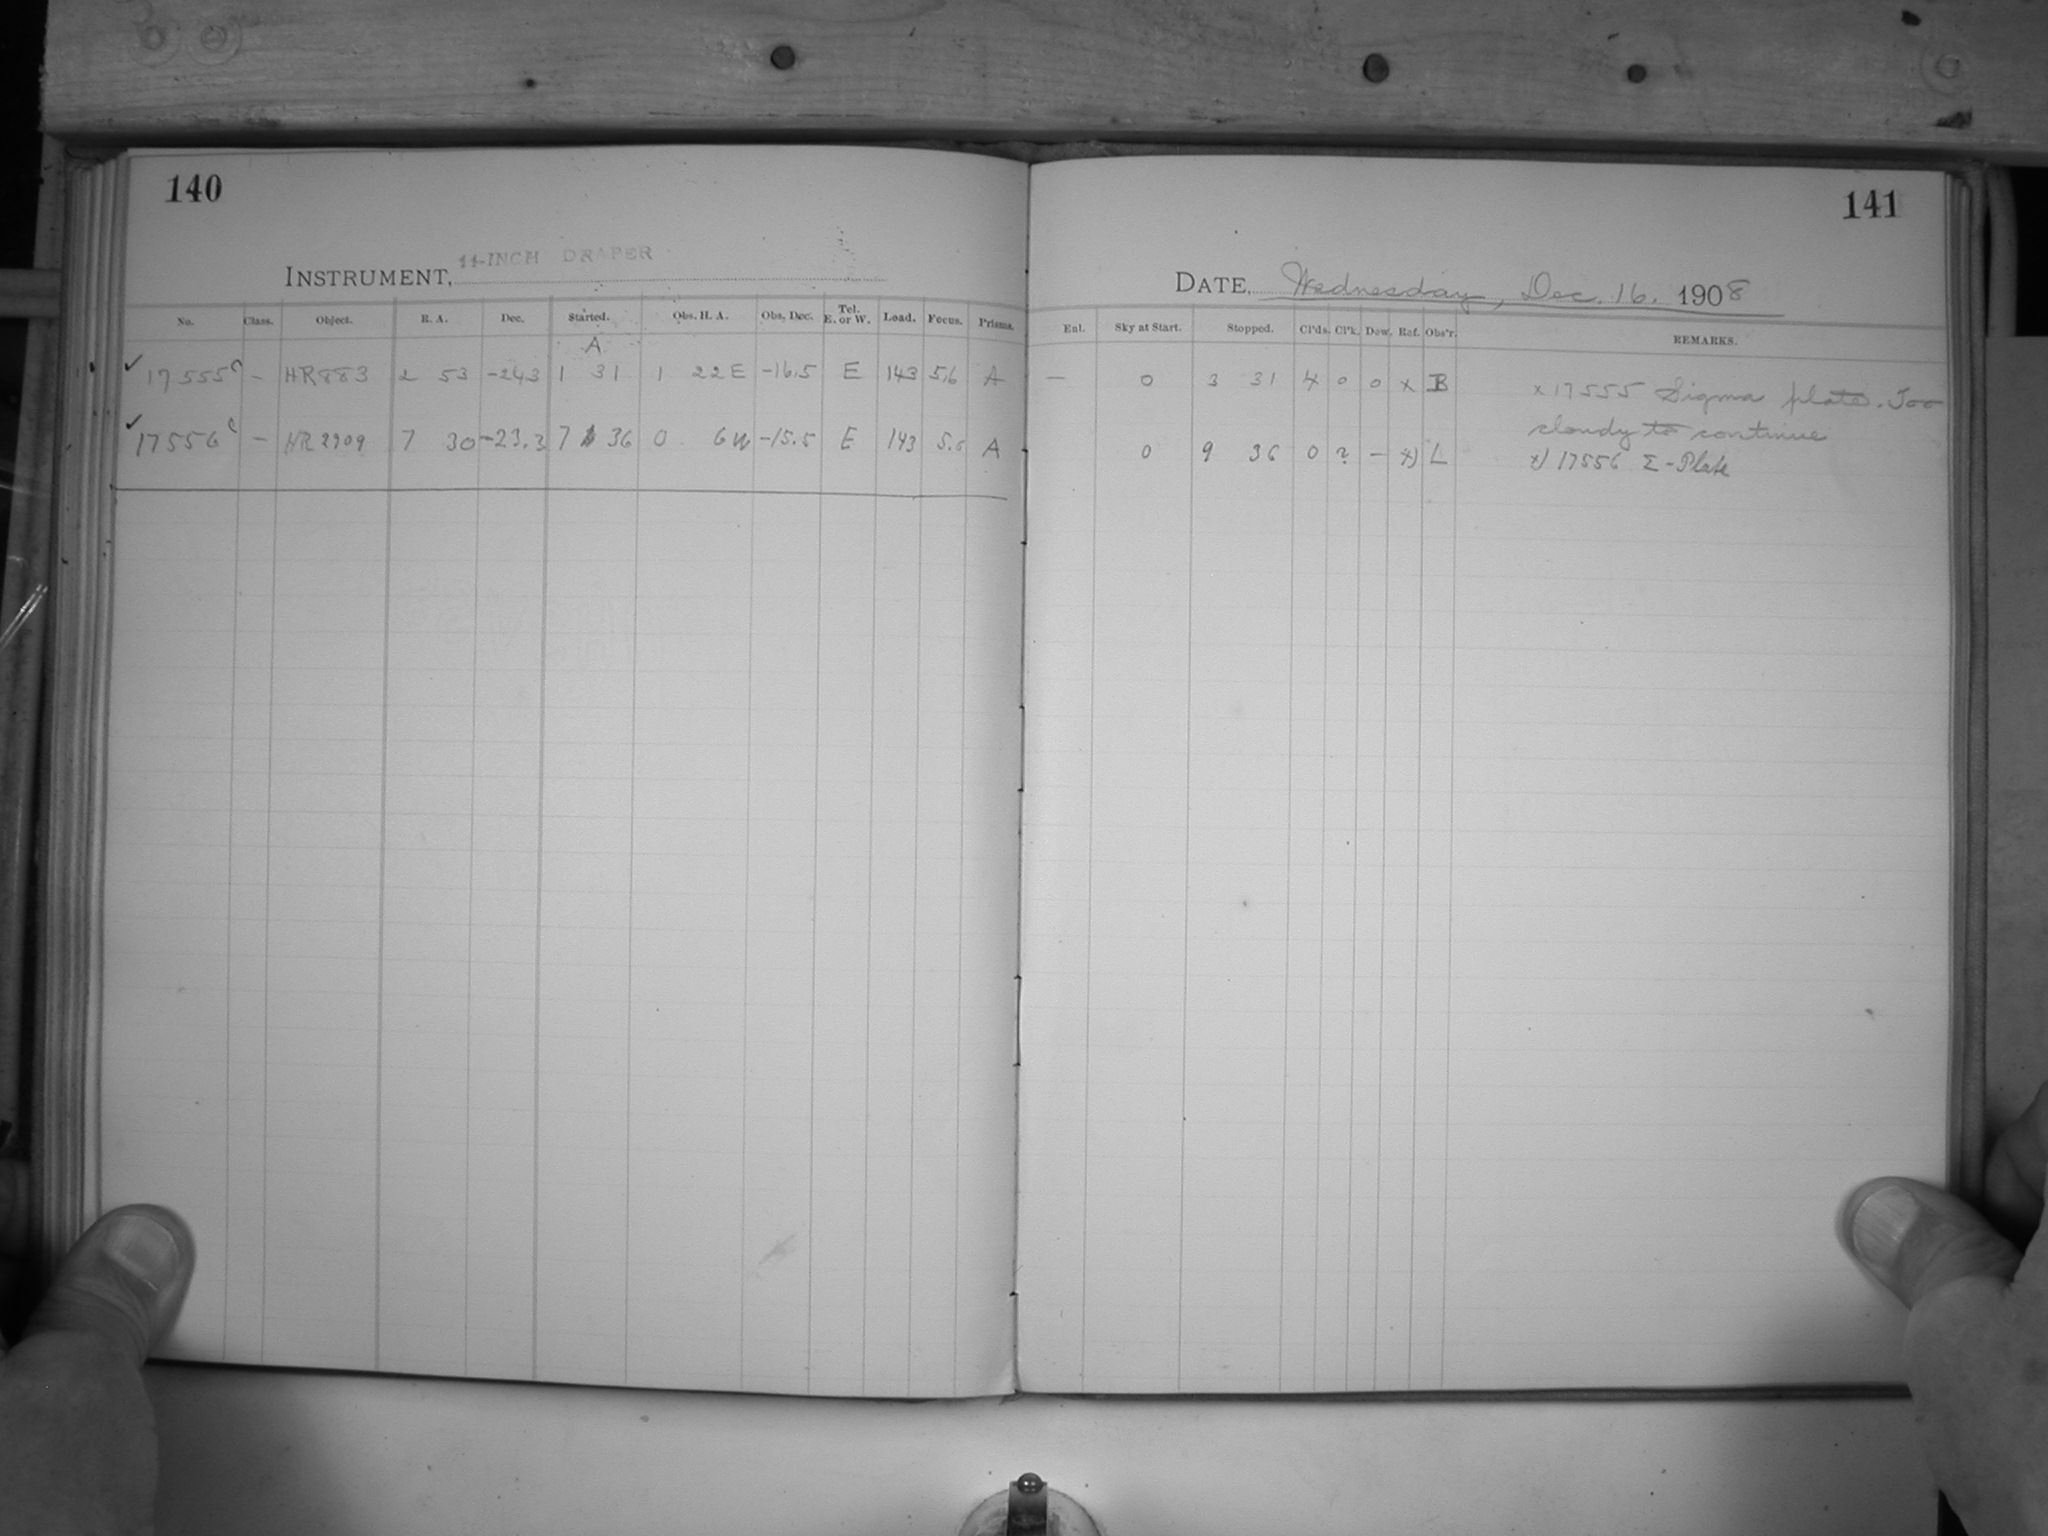 140
INSTRUMENT, 11-INCH DRAPER
No. Class. Object. R. A. Dec. Started. Obs. H. A. Obs. Dec. Tel. E. or W. Load. Focus. Prisms.
A
✓ 17555c – HR883 2 53 -24.3 1 31 1 22 E -16.5 E 143 5.6 A
✓ 17556c – HR2909 7 30 -23.3 7 36 0 6 W -15.5 E 143 5.6 A
141
DATE, Wednesday, Dec. 16. 1908
Enl. Sky at Start. Stopped. Cl'ds. Cl'k. Dew. Ref. Obs'r. REMARKS.
— 0 3 31 4 0 0 x B x 17555 Sigma plate. Too
cloudy to continue
0 9 36 0 ? – x) L x) 17556 Σ-Plate